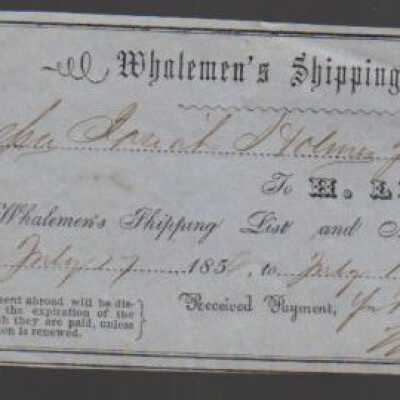 Whalemen's Shipping
Josiah Holmes J
To H. L
Whalemen's Shipping List and
July 17 185 , to July 1
ment abroad will be dis-
the expiration of the
h they are paid, unless
on is renewed.
Received Payment,